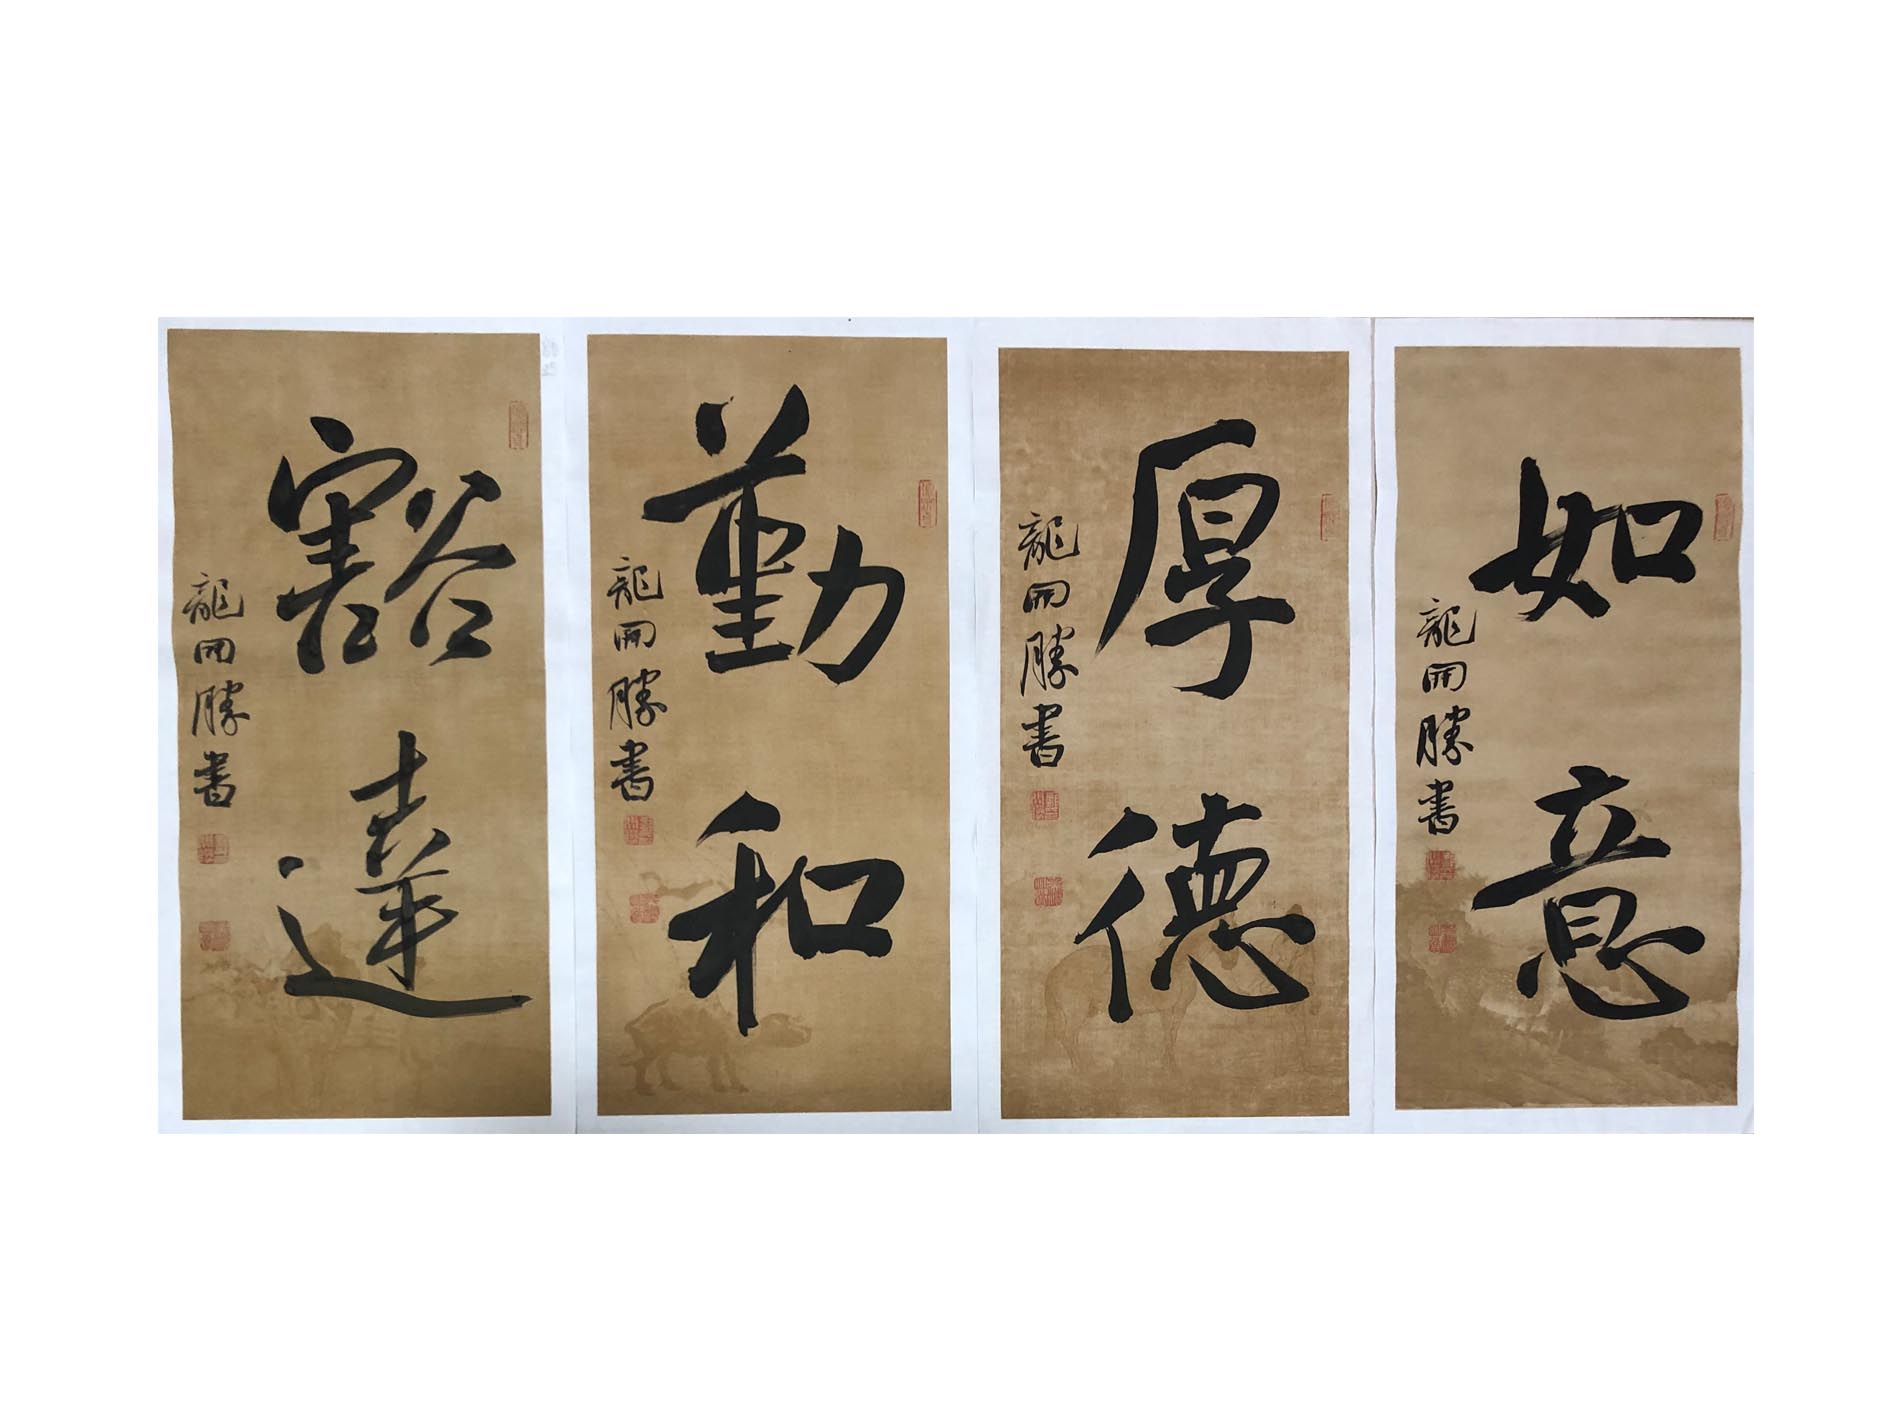 如意
龍開勝書
厚德
龍開勝書
勤和
龍開勝書
豁達
龍開勝書